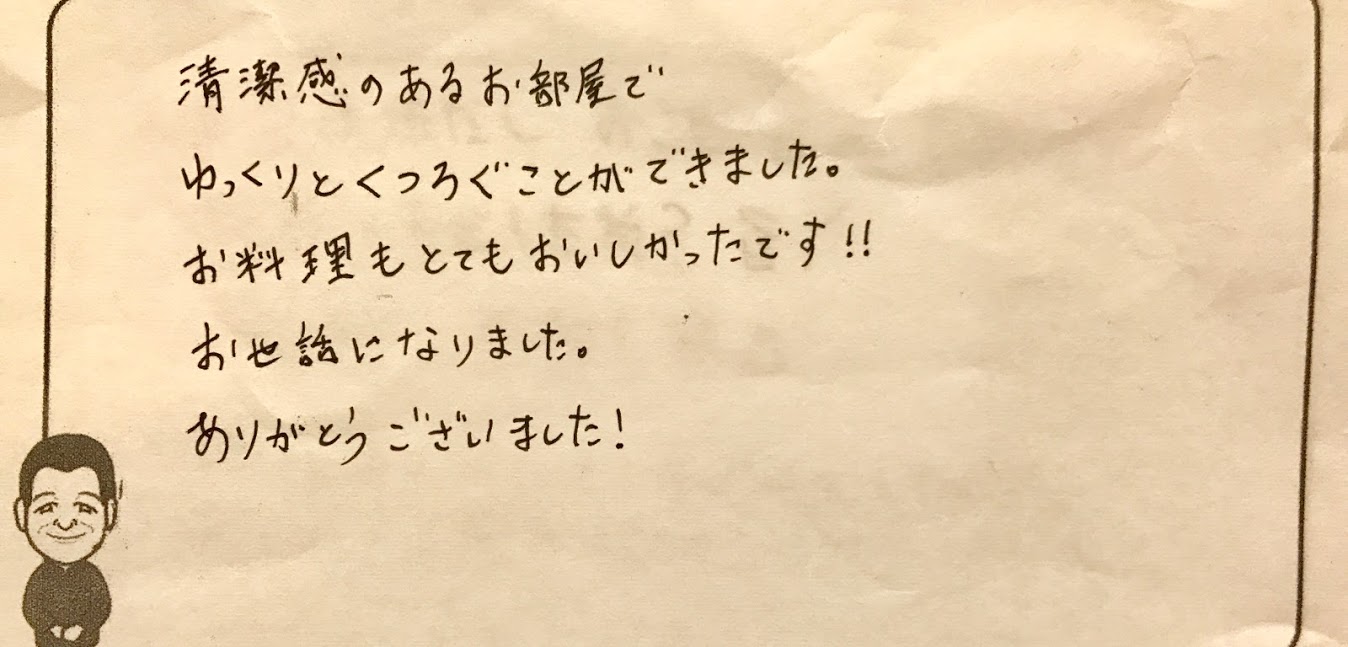 清潔感のあるお部屋で
ゆっくりとくつろぐことができました。
お料理もとてもおいしかったです!!
お世話になりました。
ありがとうございました!